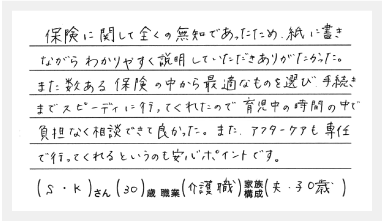 保険に関して全くの無知であったため、紙に書き
ながらわかりやすく説明していただきありがたかった。
また数ある保険の中から最適なものを選び、手続き
までスピーディに行ってくれたので育児中の時間の中で
負担なく相談できて良かった。また、アフターケアも専任
で行ってくれるというのも安心ポイントです。
(S・K)さん(30)歳 職業(介護職)家族構成(夫・30歳)